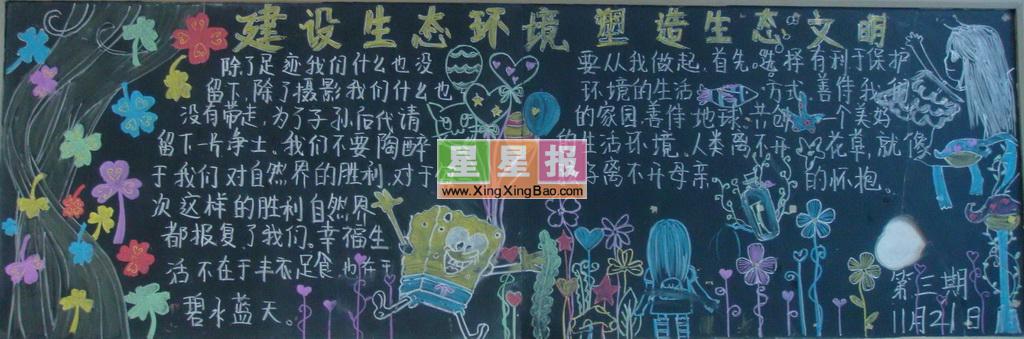 建设生态环境 塑造生态文明
除了足迹我们什么也没
留下,除了摄影我们什么也
没有带走,为了子孙后代请
留下一片净土。我们不要陶醉
于我们对自然界的胜利,对于
次这样的胜利自然界
都报复了我们。幸福生
活不在于丰衣足食,也在于
碧水蓝天。
要从我做起,首先选择有利于保护
环境的生活方式,善待我们
的家园,善待地球,共创一个美好
的生活环境。人类离不开花草,就像
离不开母亲的怀抱。
第三期
11月21日
星星报
www.XingXingBao.com